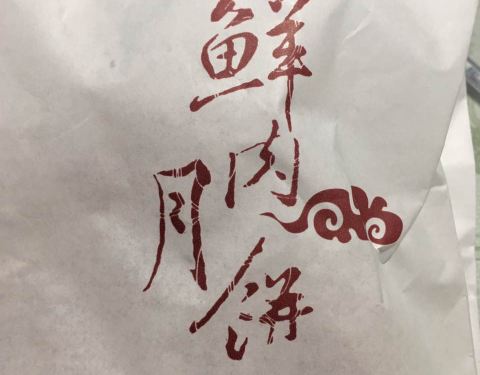 鲜肉月饼